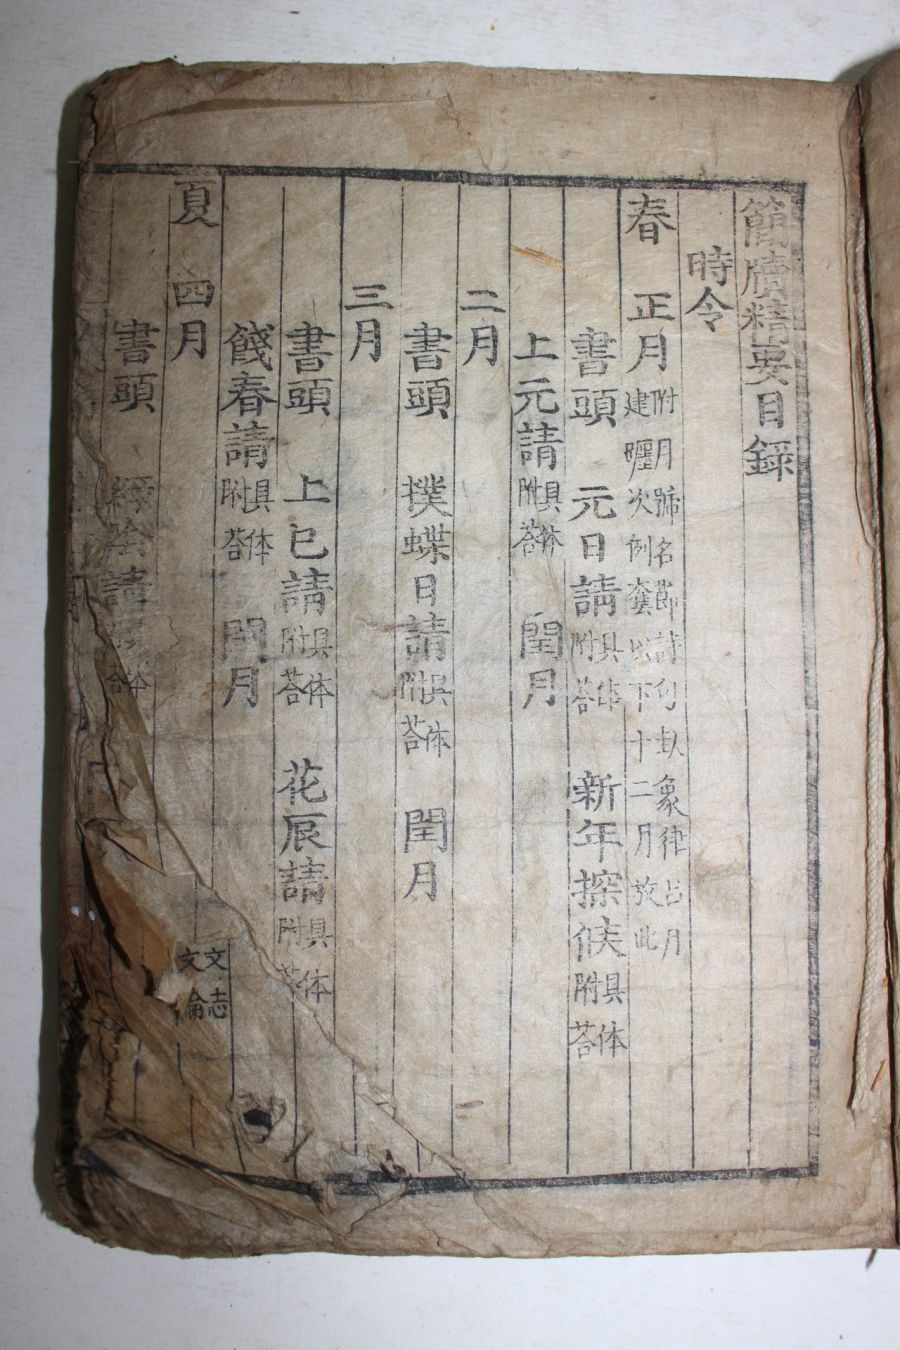 簡牘精要目錄
時令
春 正月 附月號名節詩句卦象律呂月
建躔次例套以下十二月放此
書頭 元日請 具体附答 新年探候 具体附答
上元請 具体附答 閏月
二月
書頭 撲蝶日請 具体附答 閏月
三月
書頭 上巳請 具体附答 花辰請 具体附答
餞春請 具体附答 閏月
夏 四月
書頭 請
文志
文